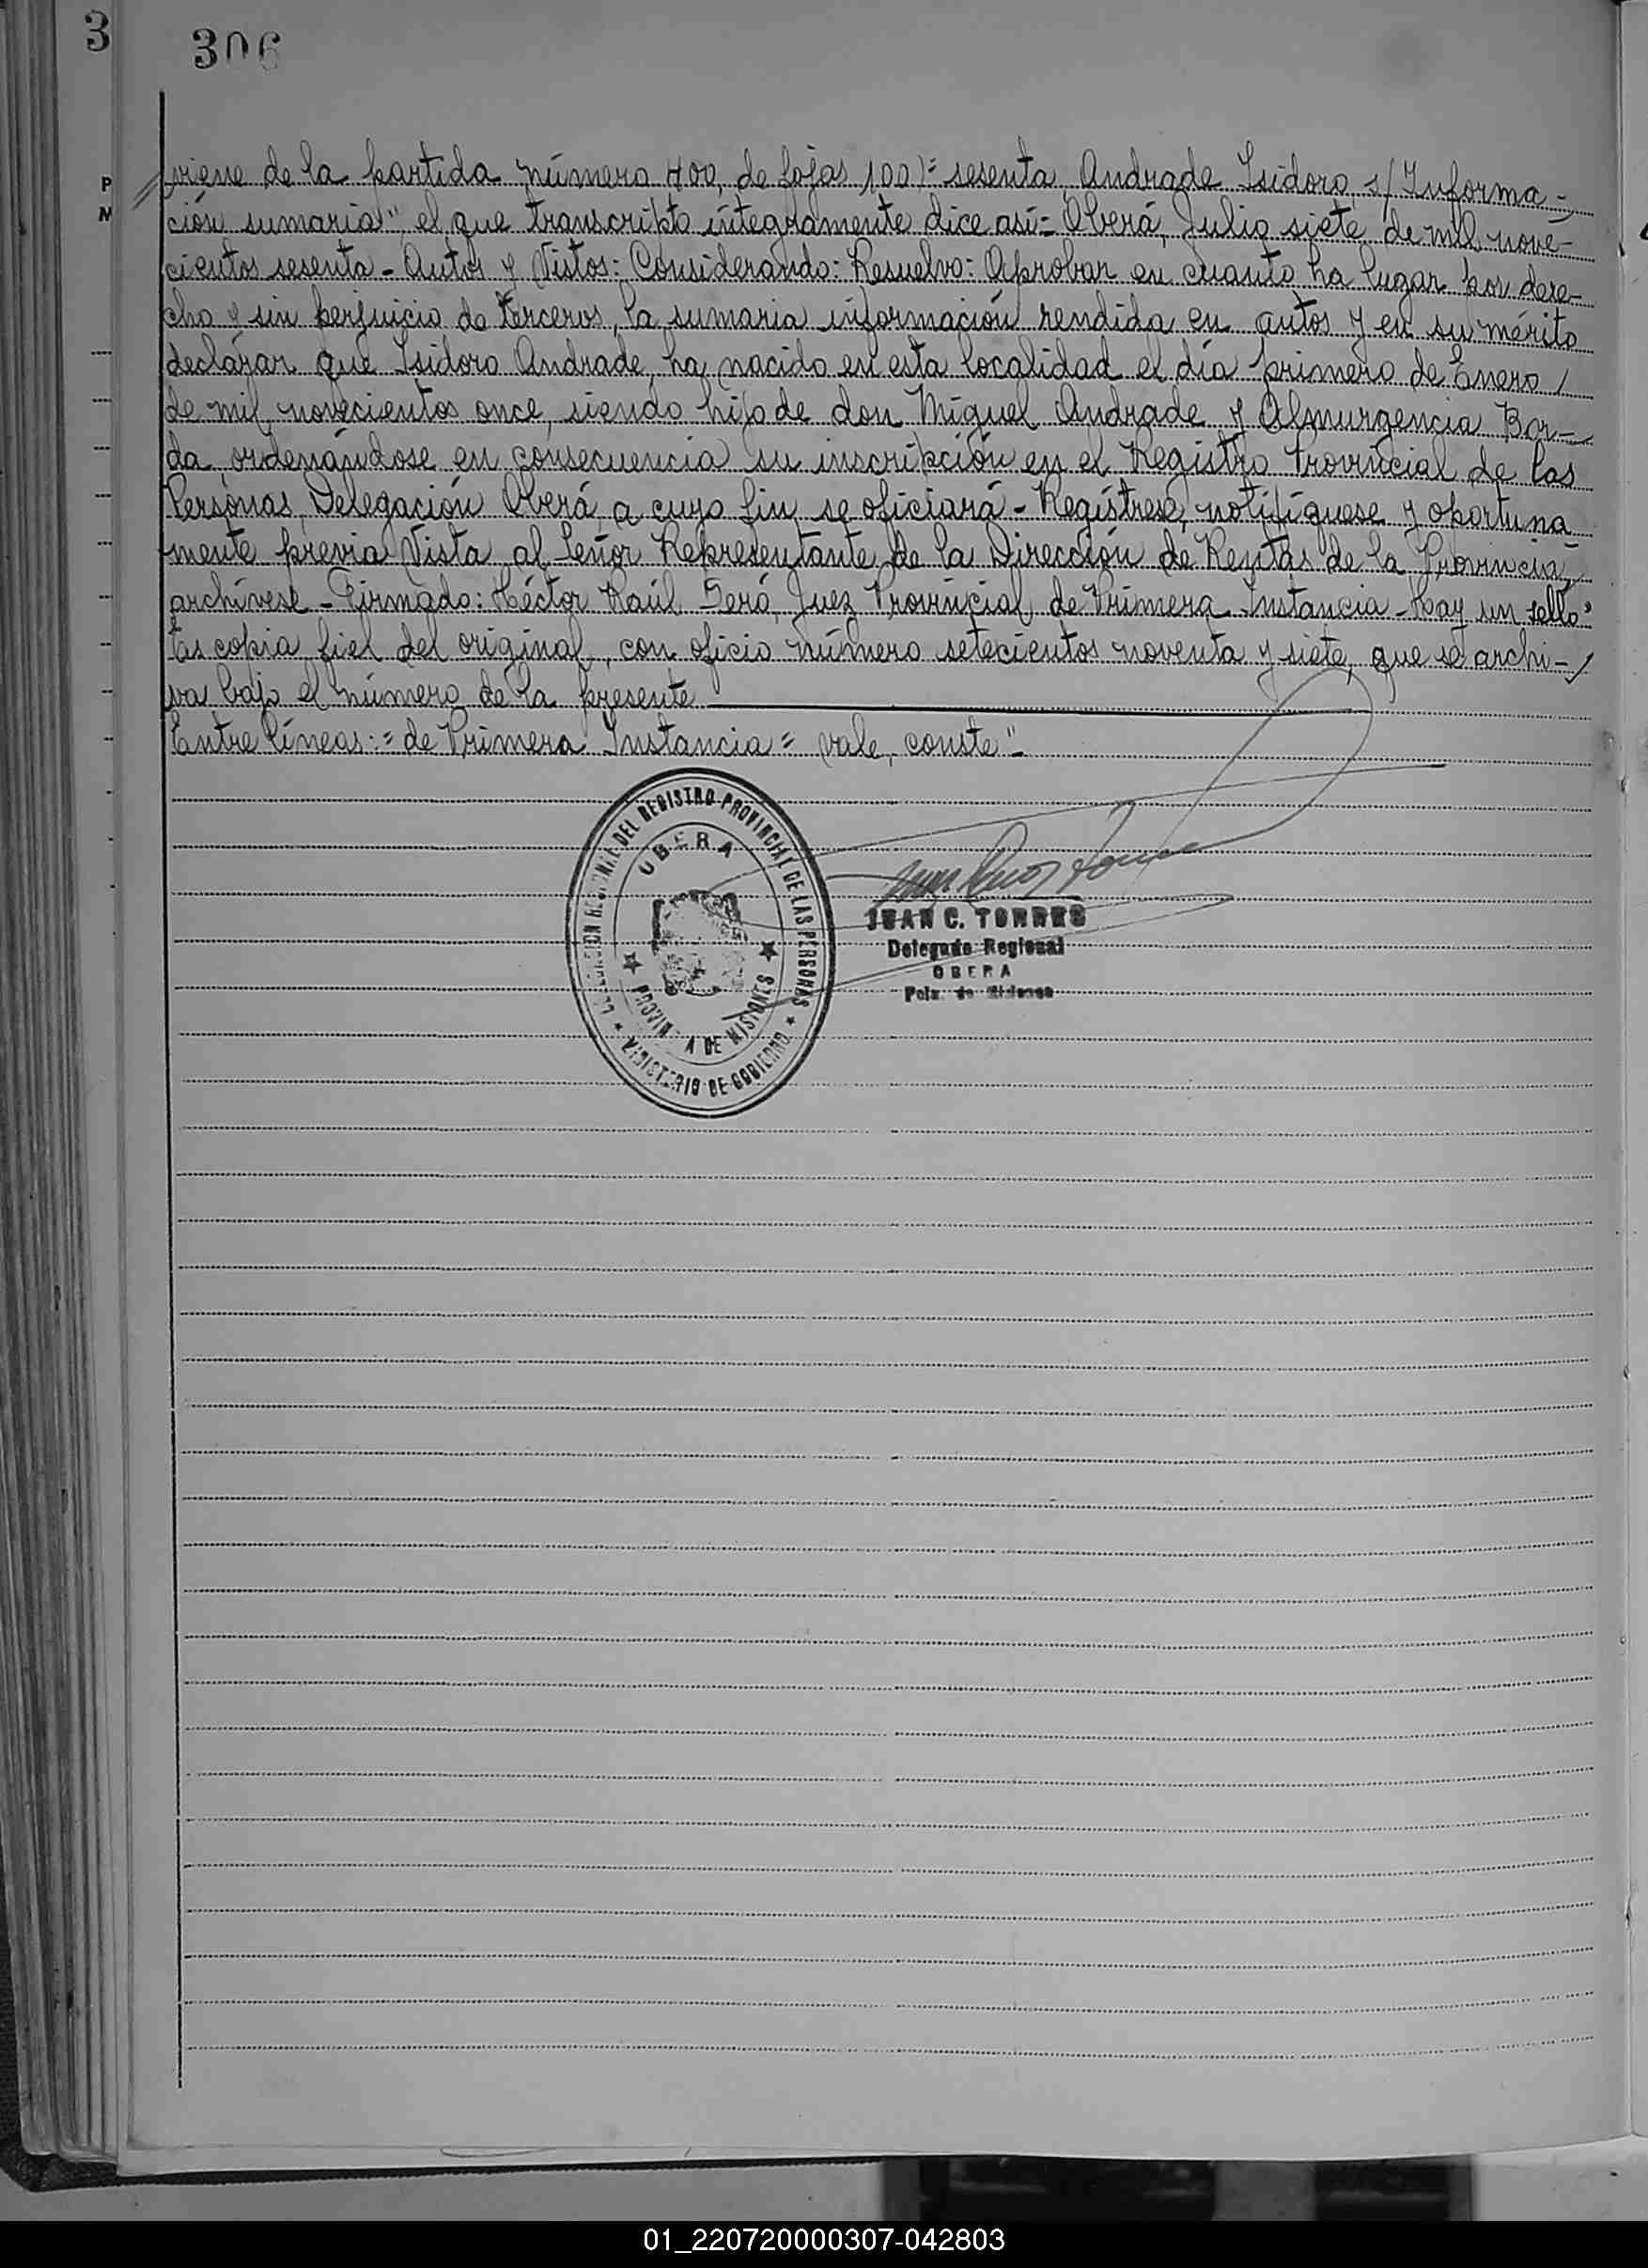 3
306
P
M
viene de la partida número 400, de fojas 100)= sesenta Andrade Isidoro s/ Informa-
ción sumaria", el que transcripto íntegramente dice así= Oberá, Julio siete de mil nove-
cientos sesenta - Autos y Vistos: Considerando: Resuelvo: Aprobar en cuanto ha lugar por dere-
cho y sin perjuicio de terceros, la sumaria información rendida en autos y en su mérito
declarar que Isidoro Andrade, ha nacido en esta localidad el día primero de Enero /
de mil novecientos once, siendo hijo de don Miguel Andrade y Almurgencia Bor-
da ordenándose en consecuencia su inscripción en el Registro Provincial de las
Personas, Delegación Oberá, a cuyo fin se oficiará - Regístrese, notifíquese y oportuna
mente previa Vista al Señor Representante de la Dirección de Rentas de la Provincia,
archívese - Firmado: Héctor Raúl Seró, Juez Provincial de Primera Instancia - Hay un sello"
Es copia fiel del original, con oficio número setecientos noventa y siete, que se archi-/
va bajo el número de la presente
Entre líneas:= de Primera Instancia= vale, conste"-
DELEGACION REGIONAL DEL REGISTRO PROVINCIAL DE LAS PERSONAS
OBERA
PROVINCIA DE MISIONES
MINISTERIO DE GOBIERNO
JUAN C. TORRES
Delegado Regional
OBERA
Pcia. de Misiones
01_220720000307-042803